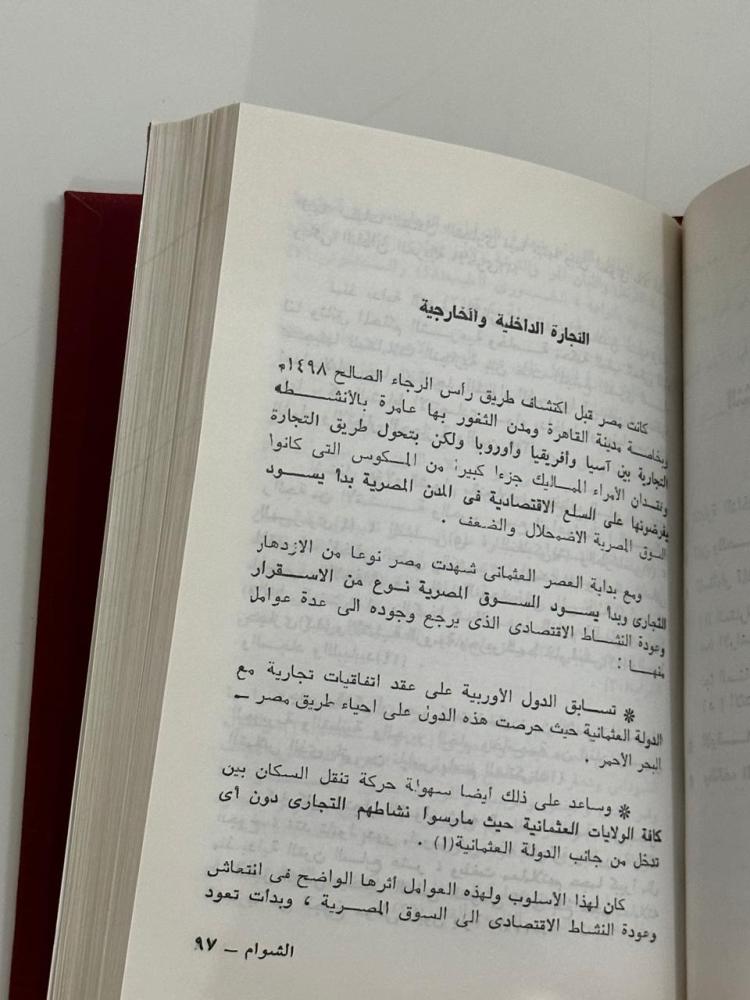 التجارة الداخلية والخارجية
كانت مصر قبل اكتشاف طريق رأس الرجاء الصالح ١٤٩٨م
وبخاصة مدينة القاهرة ومدن الثغور بها عامرة بالأنشطه
التجارية بين آسيا وأفريقيا وأوروبا ولكن بتحول طريق التجارة
وفقدان الأمراء المماليك جزءا كبيرا من المكوس التى كانوا
يفرضونها على السلع الاقتصادية فى المدن المصرية بدأ يسود
السوق المصرية الاضمحلال والضعف .
ومع بداية العصر العثمانى شهدت مصر نوعا من الازدهار
التجارى وبدأ يسود السوق المصرية نوع من الاستقرار
وعودة النشاط الاقتصادى الذى يرجع وجوده الى عدة عوامل
منها :
* تسابق الدول الأوربية على عقد اتفاقيات تجارية مع
الدولة العثمانية حيث حرصت هذه الدول على احياء طريق مصر –
البحر الأحمر .
* وساعد على ذلك أيضا سهولة حركة تنقل السكان بين
كافة الولايات العثمانية حيث مارسوا نشاطهم التجارى دون أى
تدخل من جانب الدولة العثمانية(١) .
كان لهذا الأسلوب ولهذه العوامل أثرها الواضح فى انتعاش
وعودة النشاط الاقتصادى الى السوق المصرية ، وبدأت تعود
الشوام – ٩٧